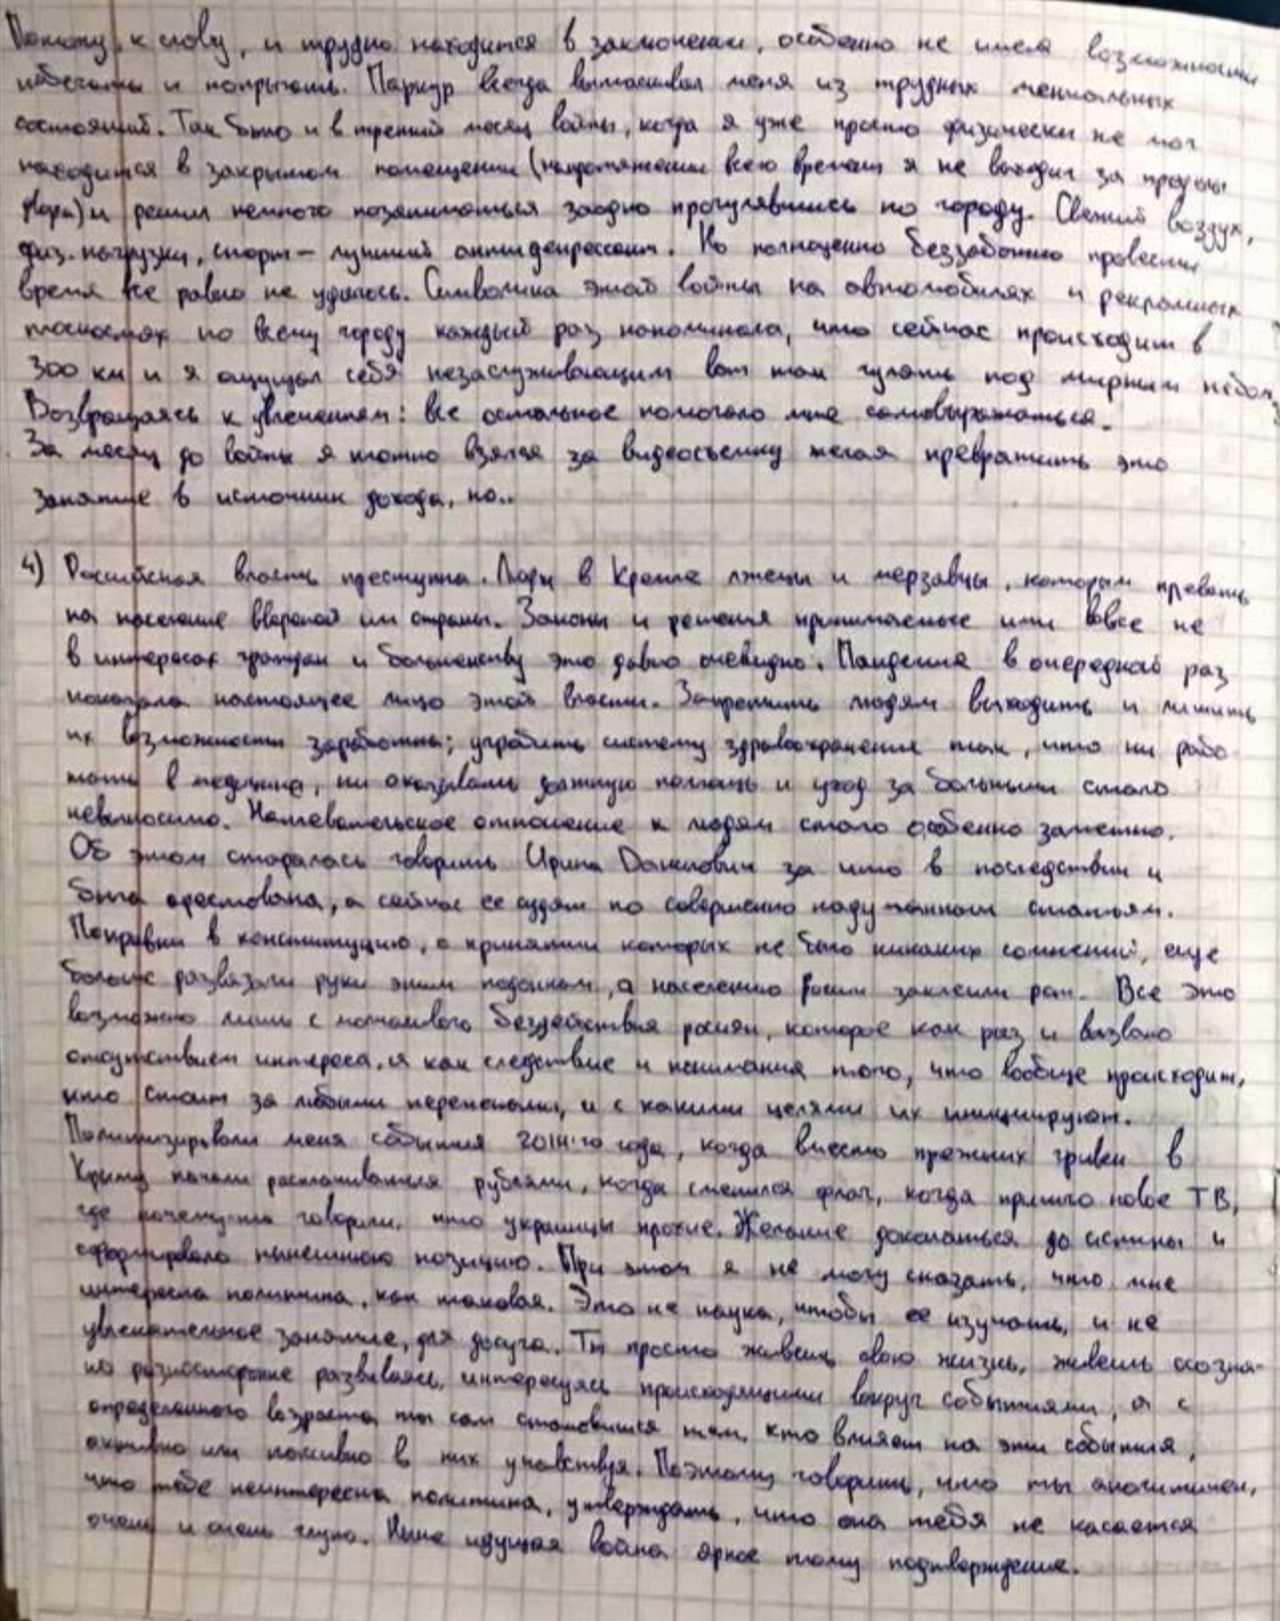 Поэтому, к слову, и трудно находится в заключении, особенно не имея возможности
побегать и попрыгать. Паркур всегда вытаскивал меня из трудных ментальных
состояний. Так было и в третий месяц войны, когда я уже просто физически не мог
находится в закрытом помещении (напротяжении всего времени я не выходил за пределы
двора) и решил немного позаниматься заодно прогулявшись по городу. Свежий воздух,
физ. нагрузки, спорт – лучший антидепрессант. Но полноценно беззаботно провести
время все равно не удалось. Символика этой войны на автомобилях и рекламных
плоскостях по всему городу каждый раз напоминала, что сейчас происходит в
300 км и я ощущал себя незаслуживающим вот так гулять под мирным небом.
Возвращаясь к увлечениям: все остальное помогало мне самовыражаться.
За месяц до войны я плотно взялся за видеосъемку желая превратить это
занятие в источник дохода, но..
4) Российская власть преступна. Люди в Кремле лжецы и мерзавцы, которым плевать
на население вверенной им страны. Законы и решения принимаемые ими вовсе не
в интересах граждан и большенству это давно очевидно. Пандемия в очередной раз
показала настоящее лицо этой власти. Запретить людям выходить и лишить
их возможности заработка; угробить систему здравоохранения так, что ни рабо-
тать в медицине, ни оказывать должную помощь и уход за больными стало
невыносимо. Наплевательское отношение к людям стало особенно заметно.
Об этом старалась говорить Ирина Данилович за что в последствии и
была арестована, а сейчас ее судят по совершенно надуманным статьям.
Поправки в конституцию, о принятии которых не было никаких сомнений, еще
больше развязали руки этим подонкам, а населению России заклеили рот. Все это
возможно лишь с молчаливого бездействия россиян, которое как раз и вызвано
отсутствием интереса, и как следствие и понимания того, что вообще происходит,
кто стоит за любыми переменами, и с какими целями их инициируют.
Политизировали меня события 2014-го года, когда вместо прежних гривен в
Крыму начали расплачиваться рублями, когда сменился флаг, когда пришло новое ТВ,
где почему-то говорили, что украинцы плохие. Желание докопаться до истины и
сформировало нынешнюю позицию. При этом я не могу сказать, что мне
интересна политика, как таковая. Это не наука, чтобы ее изучать, и не
увлекательное занятие, для досуга. Ты просто живешь свою жизнь, живешь осозна-
но разносторонне развиваясь, интересуясь происходящими вокруг событиями, а с
определенного возраста ты сам становишься тем, кто влияет на эти события,
активно или пассивно в них учавствуя. Поэтому говорить, что ты аполитичен,
что тебе неинтересна политика, утверждать, что она тебя не касается
очень и очень глупо. Ныне идущая война яркое тому подтверждение.